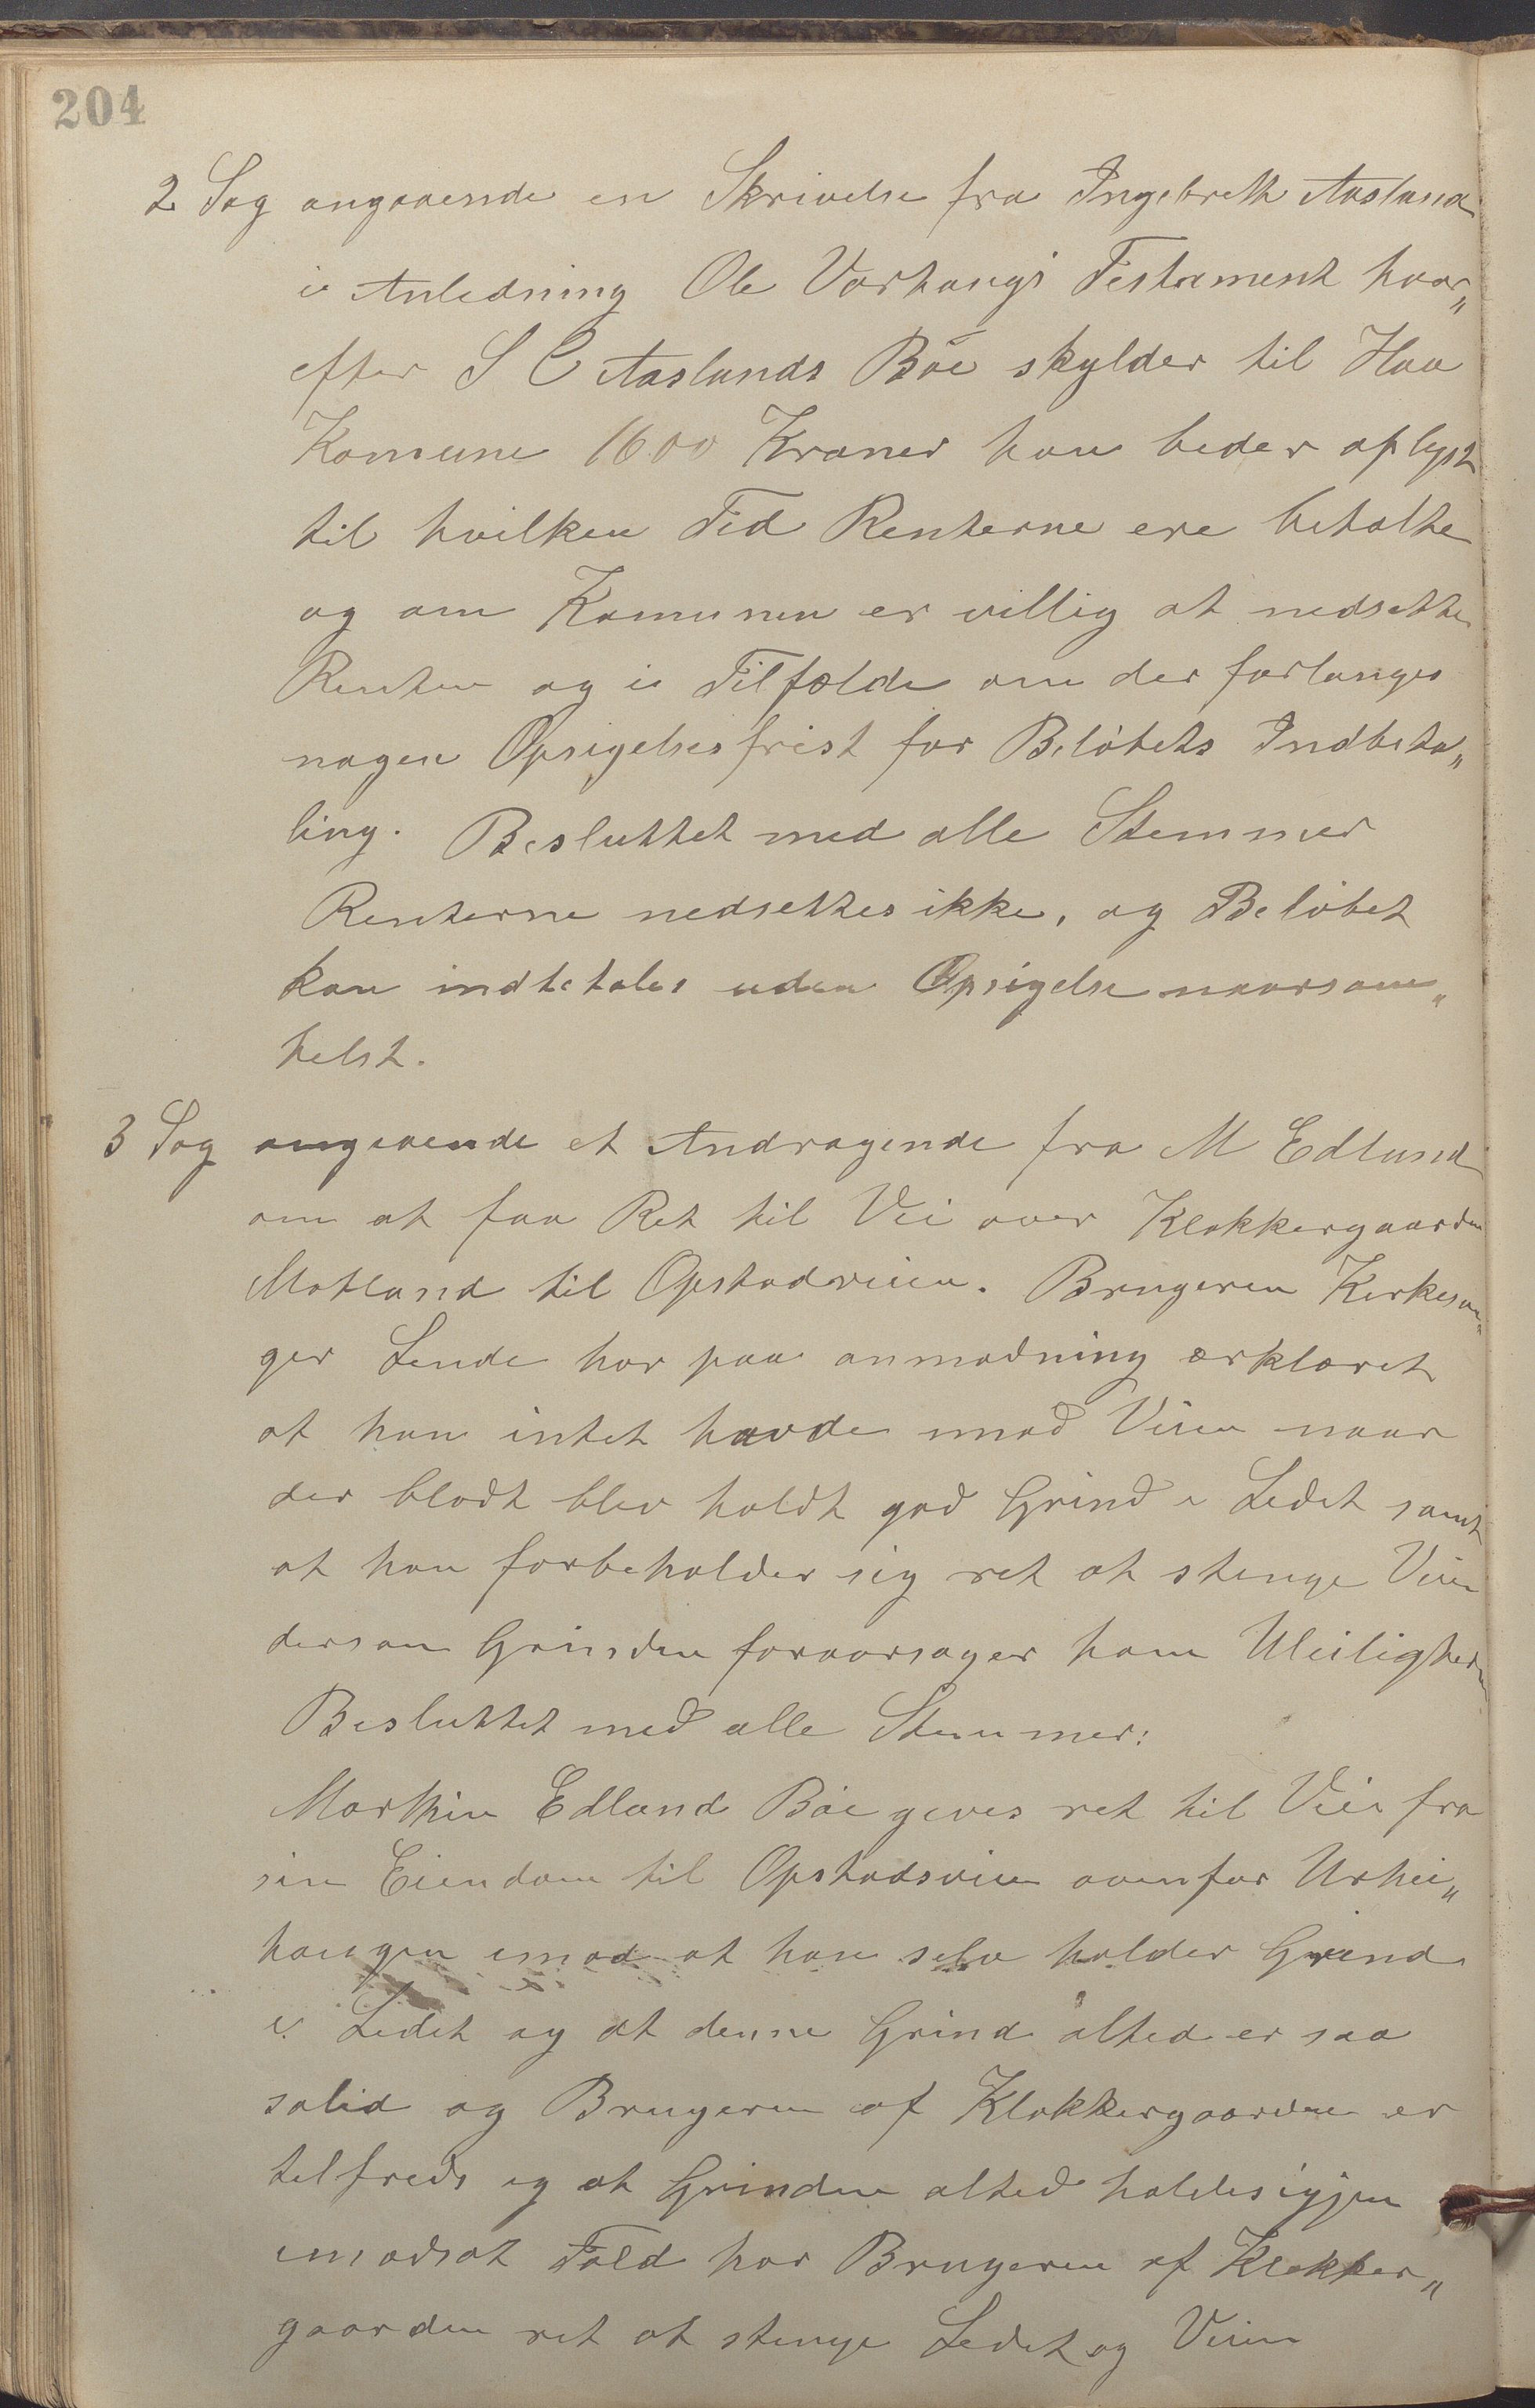 204
2 Sag angaaende en Skrivelse fra Ingebreth Aasland
i Anledning Ole Varhaugs Testament hvor„
efter S C Aaslands Böe skylder til Haa
Komune 1600 Kroner han beder oplyst
til hvilken Tid Renterne ere betalte
og om Komunen er villig at nedsette
Renten og i Tilfælde om der forlanges
nogen Opsigelsesfrist for Belöbets Indbeta„
ling. Besluttet med alle Stemmer
Renterne nedsettes ikke, og Belöbet
kan indbetales uden Opsigelse naarsom„
helst.
3 Sag angaaende et Andragende fra M Edland
om at faa Ret til Vei over Klokkergaarden
Motland til Opstadveien. Brugeren Kirkesan„
ger Lende har paa anmodning ærklæret
at han intet havde imod Veien naar
der blodt blev holdt god Grind i Ledet samt
at han forbeholder sig ret at stenge Veien
dersom Grinden foraarsager ham Uleilighed
Besluttet med alle Stemmer:
Marthin Edland Böe gives ret til Vei fra
sin Eiendom til Opstadsveien ovenfor Urhei„
haugen imod at han selv holder Grind
i Ledet og at denne Grind altid er saa
solid og Brugeren af Klokkergaarden er
tilfreds og at Grinden altid holdes igjen
imodsat Fald har Brugeren af Klokker„
gaarden ret at stenge Ledet og Veien